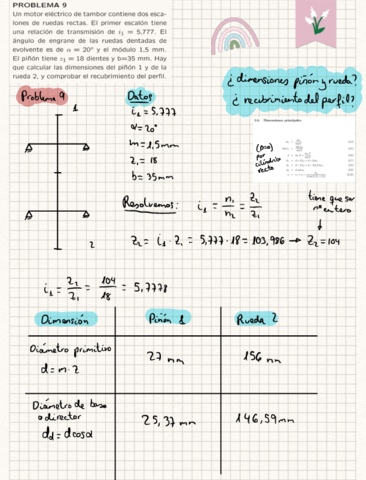 PROBLEMA 9
Un motor eléctrico de tambor contiene dos esca-
lones de ruedas rectas. El primer escalón tiene
una relación de transmisión de i₁ = 5,777. El
ángulo de engrane de las ruedas dentadas de
evolvente es de α = 20° y el módulo 1,5 mm.
El piñón tiene z₁ = 18 dientes y b=35 mm. Hay
que calcular las dimensiones del piñón 1 y de la
rueda 2, y comprobar el recubrimiento del perfil.
¿dimensiones piñón y rueda?
¿recubrimiento del perfil?
Problema 9
1
2
Datos
i₁ = 5,777
α = 20°
m = 1,5 mm
z₁ = 18
b = 35 mm
por
cilíndrico
recto
Resolvemos:
i₁ = n₁/n₂ = z₂/z₁
tiene que ser
nº entero
z₂ = i₁ · z₁ = 5,777 · 18 = 103,986 → z₂ = 104
i₁ = z₂/z₁ = 104/18 = 5,7778
Dimensión Piñón 1 Rueda 2
Diámetro primitivo
d = m · z
27 mm 156 mm
Diámetro de base
o director
d_d = d cosα
25,37 mm 146,59 mm